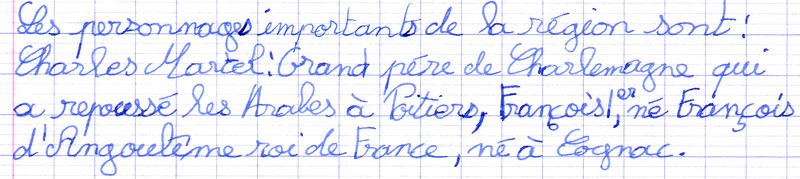 Les personnages importants de la région sont :
Charles Martel : Grand père de Charlemagne qui
a repoussé les Arabes à Poitiers, François 1er, né François
d'Angoulème roi de France, né à Cognac.